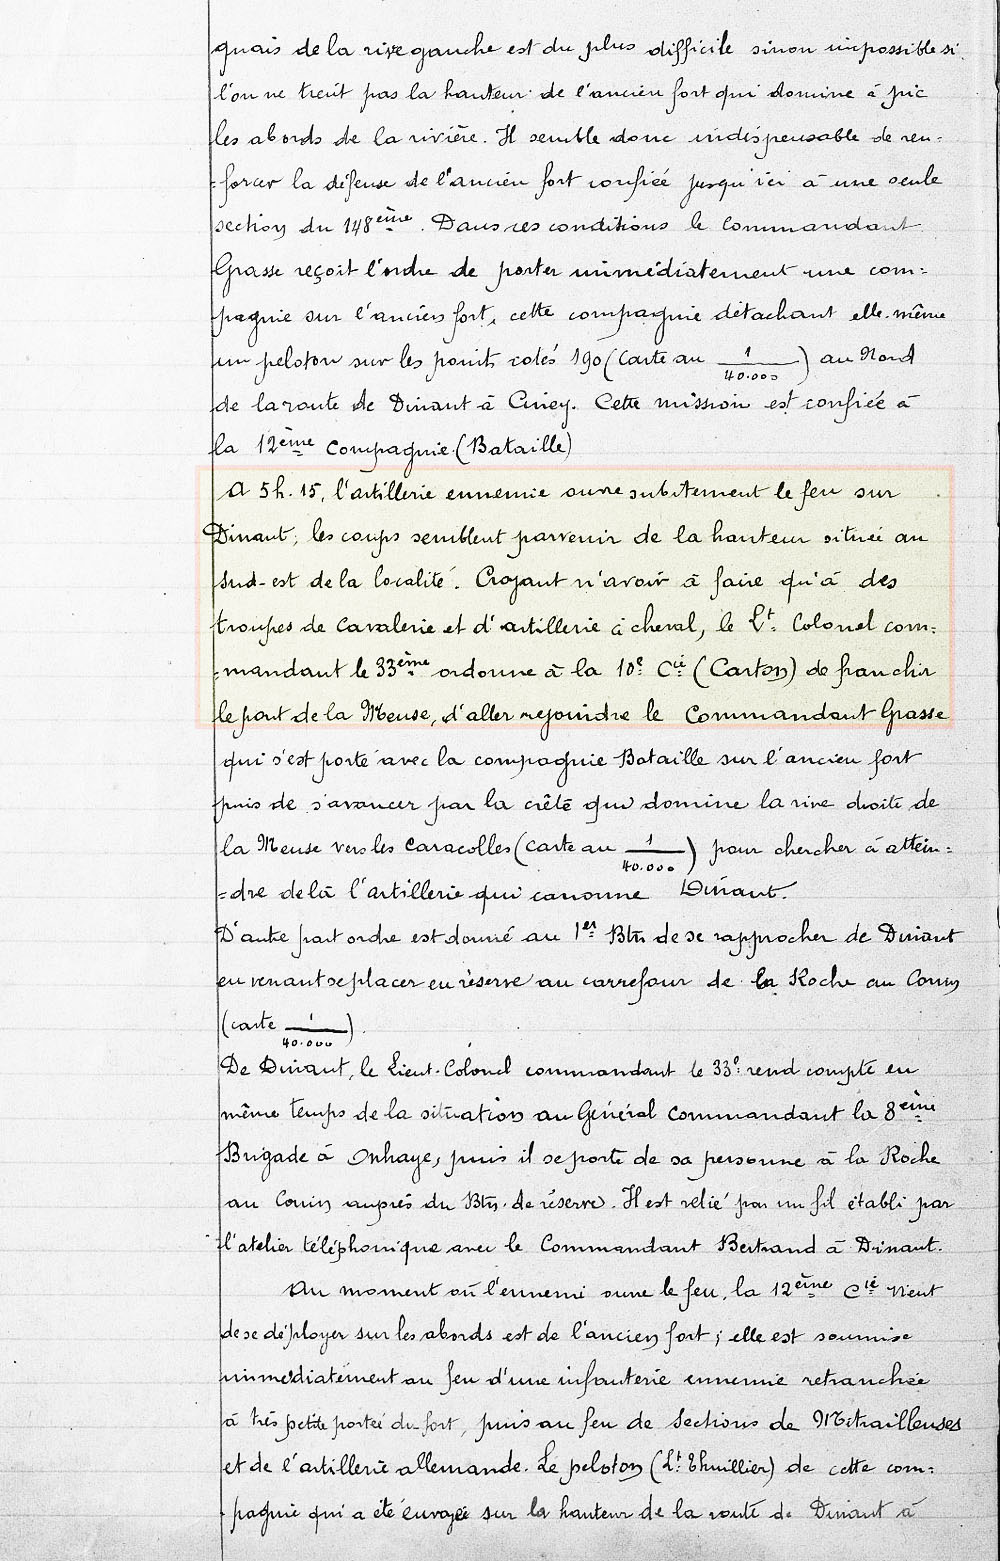 quais de la rive gauche est du plus difficile sinon impossible si
l'on ne tient pas la hauteur de l'ancien fort qui domine à pic
les abords de la rivière. Il semble donc indispensable de ren=
=forcer la défense de l'ancien fort confiée jusqu'ici à une seule
section du 148ème. Dans ces conditions le Commandant
Grasse reçoit l'ordre de porter immédiatement une com=
pagnie sur l'ancien fort, cette compagnie détachant elle-même
un peloton sur les points cotés 190 (Carte au 1/40.000) au Nord
de la route de Dinant à Ciney. Cette mission est confiée à
la 12ème Compagnie. (Bataille)
A 5h.15, l'artillerie ennemie ouvre subitement le feu sur
Dinant; les coups semblent parvenir de la hauteur située au
sud-est de la localité. Croyant n'avoir à faire qu'à des
troupes de cavalerie et d'artillerie à cheval, le Lt. Colonel com=
=mandant le 33ème ordonne à la 10e Cie (Carton) de franchir
le pont de la Meuse, d'aller rejoindre le Commandant Grasse
qui s'est porté avec la compagnie Bataille sur l'ancien fort
puis de s'avancer par la crête qui domine la rive droite de
la Meuse vers les Caracolles (carte au 1/40.000) pour chercher à attein=
=dre de là l'artillerie qui canonne Dinant.
D'autre part ordre est donné au 1er Btn de se rapprocher de Dinant
en venant se placer en réserve au carrefour de la Roche au Couin
(carte 1/40.000).
De Dinant, le Lieut-Colonel commandant le 33e rend compte en
même temps de la situation au Général Commandant la 8ème
Brigade à Onhaye, puis il se porte de sa personne à la Roche
au Couin auprès du Btn. de réserve. Il est relié par un fil établi par
l'atelier téléphonique avec le Commandant Bertrand à Dinant.
Au moment où l'ennemi ouvre le feu, la 12ème Cie vient
de se déployer sur les abords est de l'ancien fort; elle est soumise
immédiatement au feu d'une infanterie ennemie retranchée
à très petite portée du fort, puis au feu de Sections de Mitrailleuses
et de l'artillerie allemande. Le peloton (Lt. Thuillier) de cette com=
pagnie qui a été envoyée sur la hauteur de la route de Dinant à